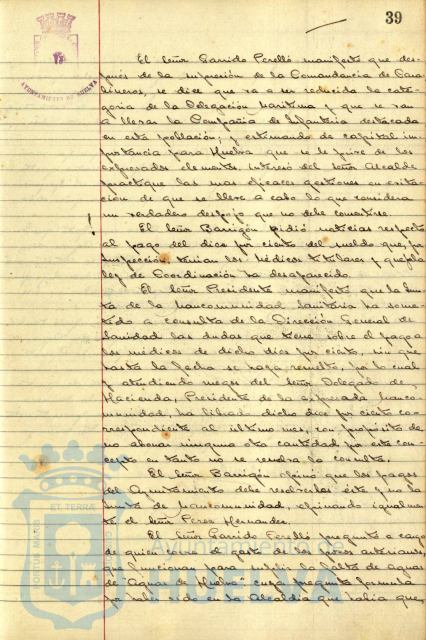 39
AYUNTAMIENTO DE HUELVA
El Señor Garrido Perelló manifestó que des-
pués de la supresión de la Comandancia de Cara-
bineros, se dice que va a ser reducida la cate-
goría de la Delegación Marítima y que se van
a llevar la Compañía de Infantería destacada
en esta población; y estimando de capital im-
portancia para Huelva que no se le prive de los
expresados elementos, interesó del Señor Alcalde
practique las más eficaces gestiones en evita-
ción de que se lleve a cabo lo que considera
un verdadero despojo que no debe consentirse.
El Señor Barrigón pidió noticias respecto
al pago del diez por ciento del sueldo que, por
Inspección, tenían los médicos titulares y que por la
ley de Coordinación ha desaparecido.
El Señor Presidente manifestó que la Jun-
ta de la Mancomunidad Sanitaria ha some-
tido a consulta de la Dirección General de
Sanidad las dudas que tiene sobre el pago a
los médicos de dicho diez por ciento, sin que
hasta la fecha se haya resuelto, por lo cual
y atendiendo ruegos del Señor Delegado de
Hacienda, Presidente de la expresada Manco-
munidad, ha librado dicho diez por ciento co-
rrespondiente al último mes, con propósito de
no abonar ninguna otra cantidad por este con-
cepto en tanto no se resuelva la consulta.
El Señor Barrigón opinó que los pagos
del Ayuntamiento debe resolverlos éste y no la
Junta de Mancomunidad, opinando igualmen-
te el Señor Pérez Hernández.
El Señor Garrido Perelló preguntó a cargo
de quien corre el gasto de los pozos artesianos,
que funcionan para suplir la falta de aguas
de "Aguas de Huelva" cuya pregunta formula
por haber oído a la Alcaldía que había que,
PORTUS MARIS ET TERRAE
Ayuntamiento de
HUELVA